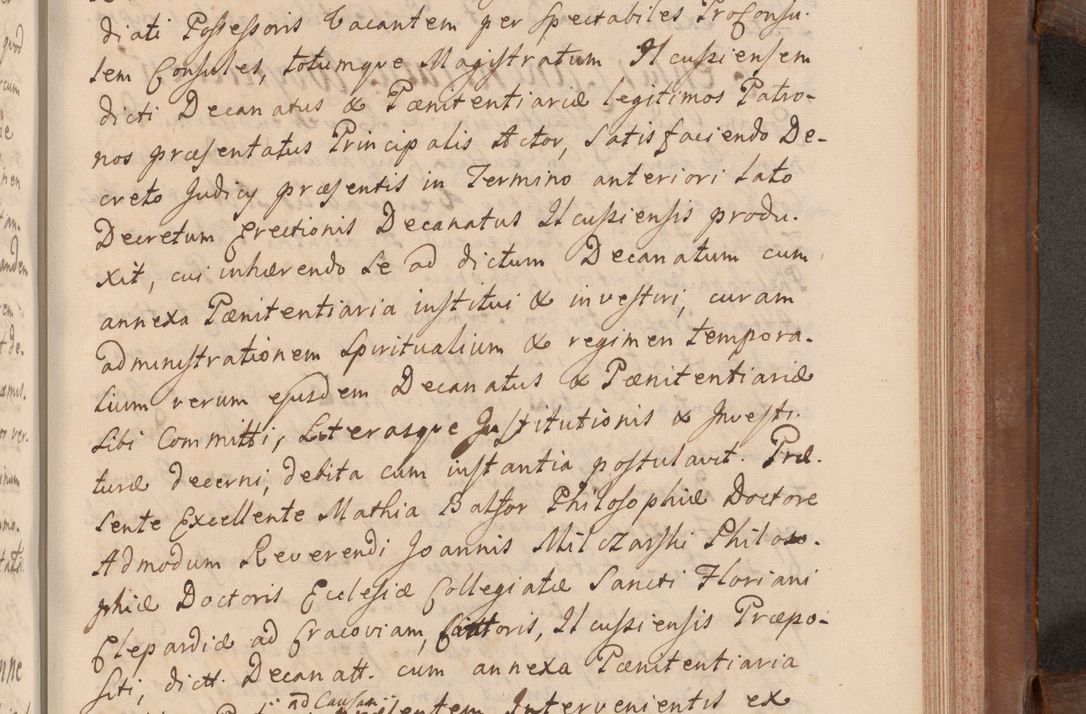 diati Possessoris Vacantem per Spectabiles Proconsu-
lem Consules, totumque Magistratum Ilcussiensem
dicti Decanatus & Pænitentiariæ legitimos Patro-
nos præsentatus Principalis Actor, satisfaciendo De-
creto Judicÿ præsentis in Termino anteriori lato
Decretum Erectionis Decanatus Ilcussiensis produ-
xit, cui inhærendo se ad dictum Decanatum cum
annexa Pænitentiaria institui & investiri, curam
administrationem Spiritualium & regimen tempora-
lium rerum ejusdem Decanatus & Pænitentiariæ
sibi Committi, Literasque Institutionis & Investi-
turæ decerni, debita cum instantia postulavit. Præ-
sente Excellente Mathia Balsor Philosophiæ Doctore
Admodum Reverendi Joannis Milczarski Philoso-
phiæ Doctoris Ecclesiæ Collegiatæ Sancti Floriani
Clepardiæ ad Cracoviam, Cantoris, Ilcussiensis Præpo-
siti, dictt. Decanatt. cum annexa Pænitentiaria
ad Causam
Intervenientis ex